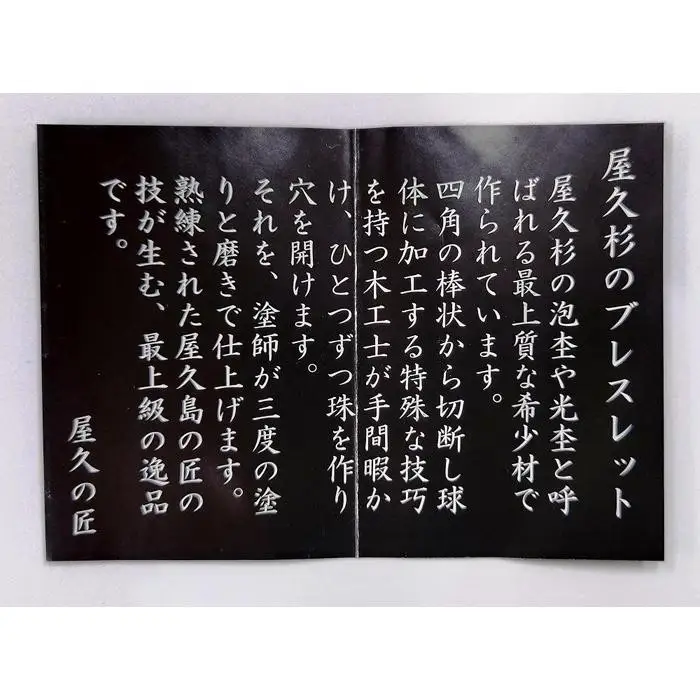 屋久杉のブレスレット
屋久杉の泡杢や光杢と呼
ばれる最上質な希少材で
作られています。
四角の棒状から切断し球
体に加工する特殊な技巧
を持つ木工士が手間暇か
け、ひとつずつ珠を作り
穴を開けます。
それを、塗師が三度の塗
りと磨きで仕上げます。
熟練された屋久島の匠の
技が生む、最上級の逸品
です。
屋久の匠